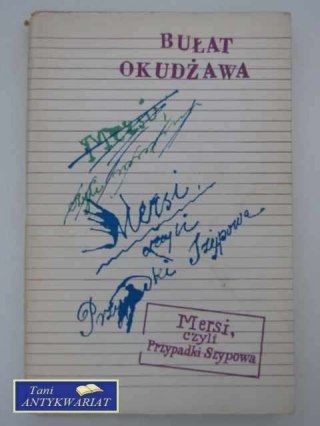 BUŁAT
OKUDŻAWA
Mersi
czyli
Mersi
czyli
Przypadki Szypowa
Mersi,
czyli
Przypadki Szypowa
Tani
ANTYKWARIAT